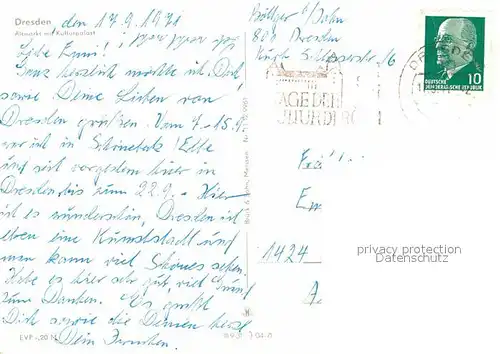 Dresden den 17.9.1971
Altmarkt mit Kulturpalast
Liebe Emmi!
Ganz herzlich möchte ich Dich
sowie Deine Lieben von
Dresden grüßen. Vom 7.-15.9.
war ich in Schönebeck/Elbe
und seit vorgestern hier in
Dresden bis zum 22.9. - Hier
ist es wunderschön, Dresden ist
eben eine Kunststadt und
man kann viel Schönes sehen.
Habe es hier sehr gut, viel Grund
zum Danken. Es grüßt
Dich sowie die Deinen herzl.
Dein
EVP -,20 M
Böttger b/Jahn
801 Dresden
DRESDEN
TAGE DER
DEUTSCHE
DEMOKRATISCHE REPUBLIK
10
1424
privacy protection
Datenschutz